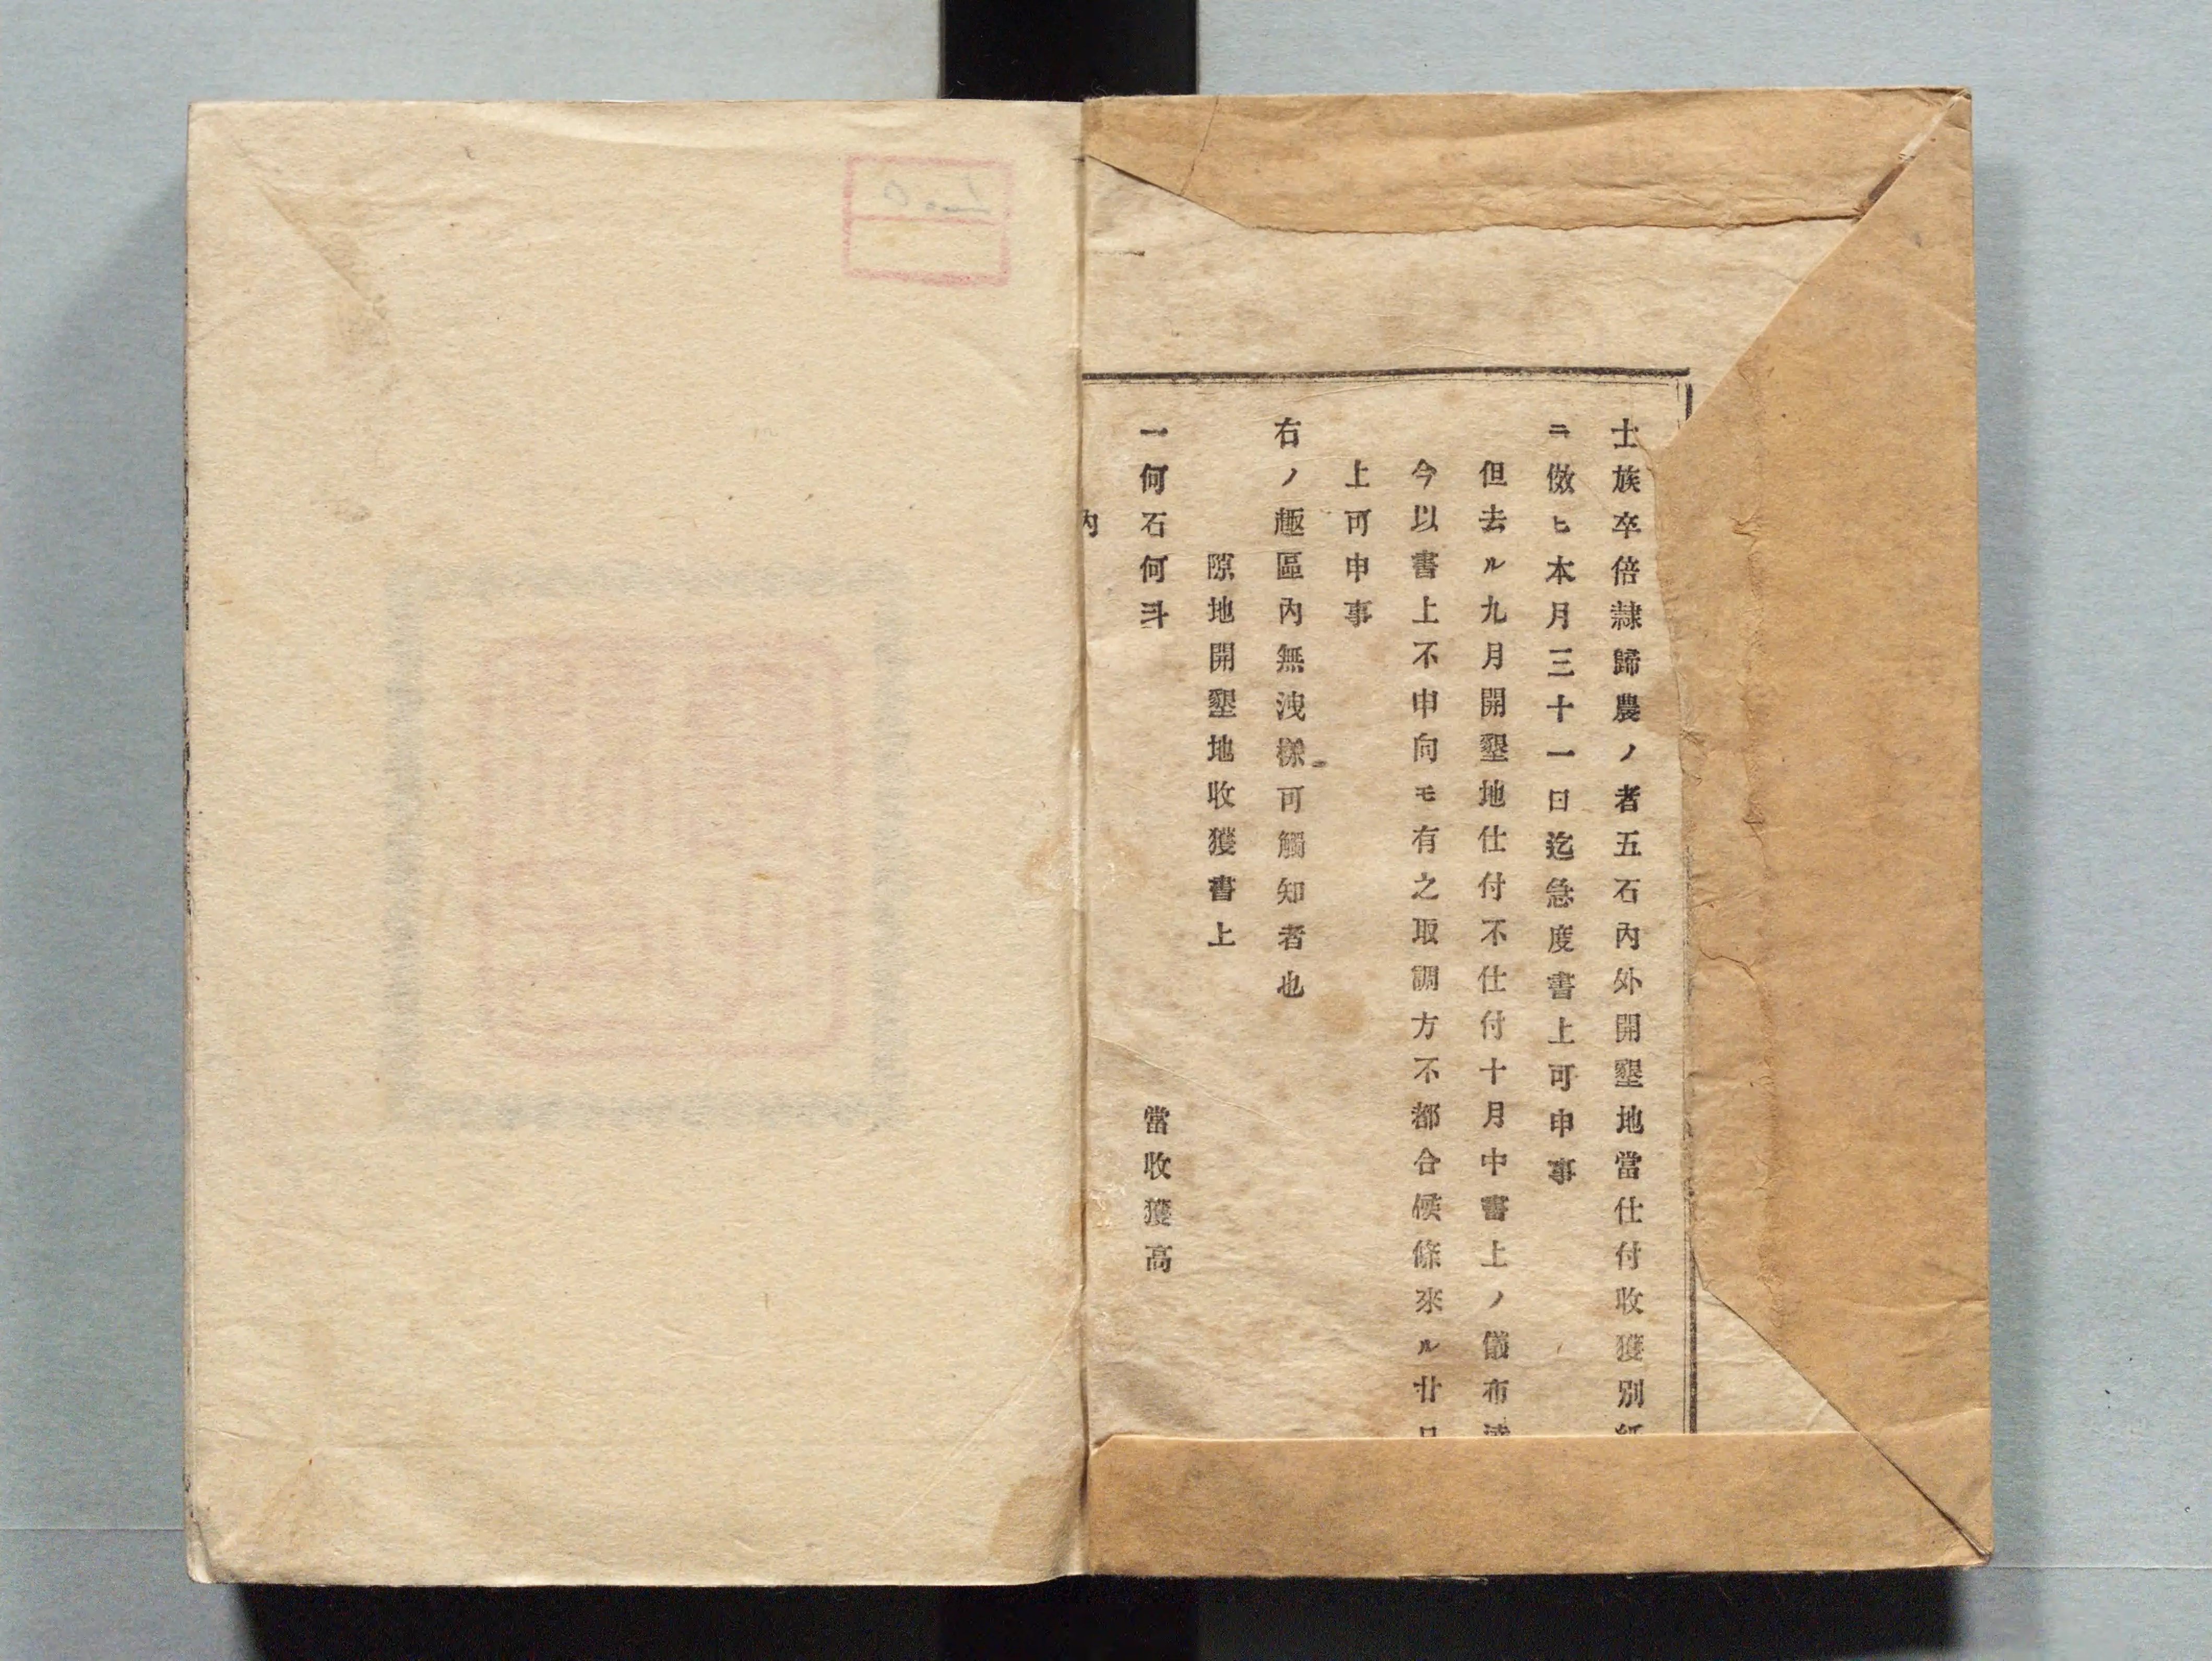 士族卒倍隷歸農ノ者五石內外開墾地當仕付收獲別紙
ニ倣ヒ本月三十一日迄急度書上可申事
但去ル九月開墾地仕付不仕付十月中書上ノ儀布達
今以書上不申向モ有之取調方不都合候條來ル廿日
上可申事
右ノ趣區內無洩樣可觸知者也
隙地開墾地收獲書上
一何石何斗 當收獲高
內